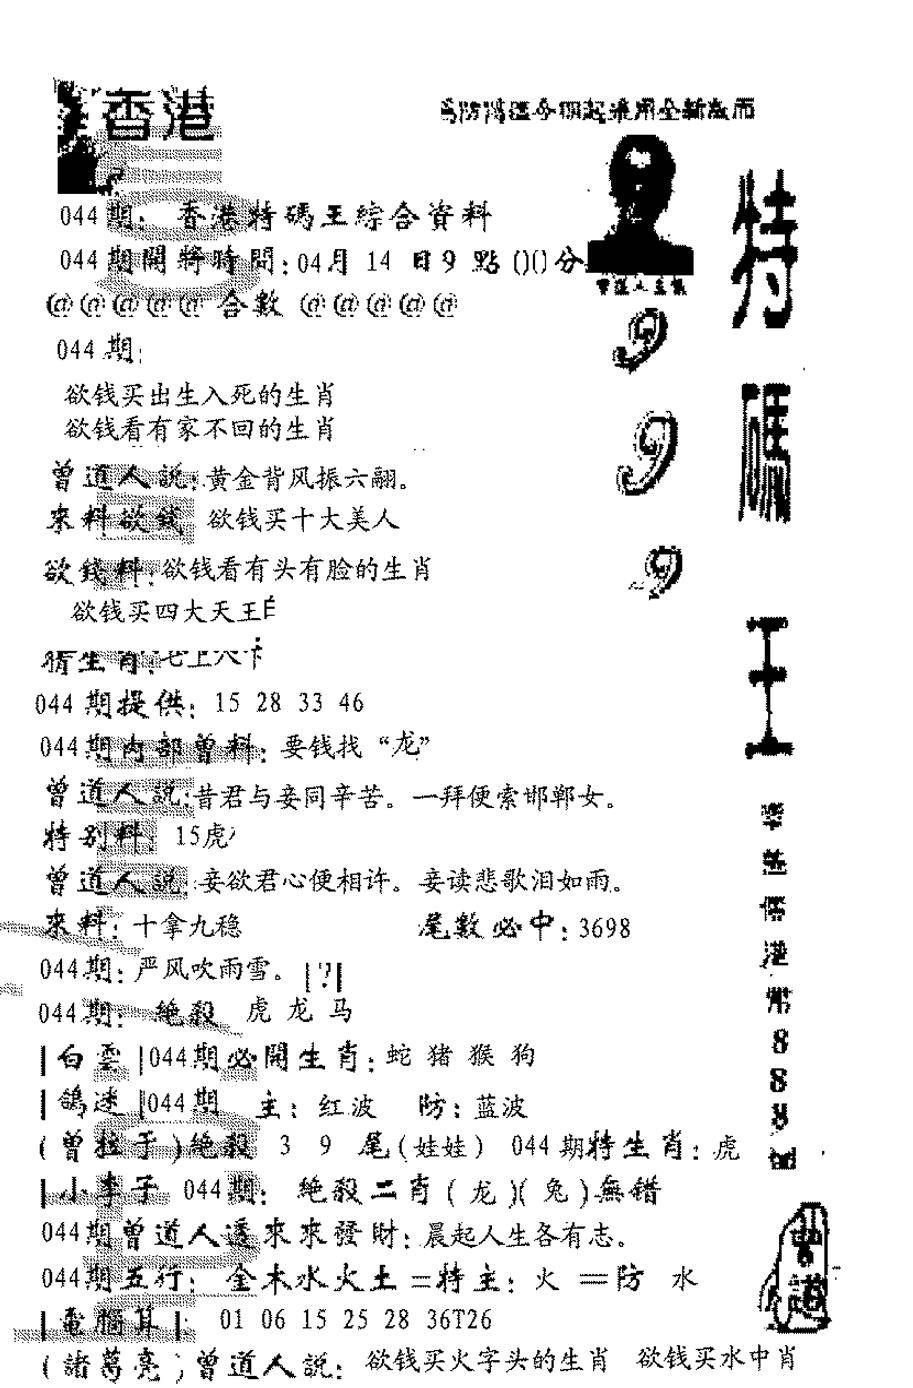 香港
特碼王
044期：香港特碼王綜合資料
044期開將時間：04月 14 日9 點 00分
@@@@@ 合數 @@@@@
044期：
欲钱买出生入死的生肖
欲钱看有家不回的生肖
9
9
9
曾道人説：黄金背风振六翮。
來料欲錢 欲钱买十大美人
欲錢料：欲钱看有头有脸的生肖
欲钱买四大天王
猜生肖：七上八下
044期提供：15 28 33 46
044期内部曾料：要钱找“龙”
曾道人説：昔君与妾同辛苦。一拜便索邯郸女。
特别料：15虎
曾道人説：妾欲君心便相许。妾读悲歌泪如雨。
來料：十拿九稳 尾數必中：3698
044期：严风吹雨雪。|?|
044期：絶殺 虎 龙 马
|白雲|044期必開生肖：蛇 猪 猴 狗
|鴿迷|044期 主：红波 防：蓝波
(曾拉于)絶殺 3 9 尾(娃娃) 044期特生肖：虎
|小李子 044期：絶殺二肖(龙)(兔)無错
044期曾道人透來來發財：晨起人生各有志。
044期五行：金木水火土=特主：火 =防 水
|電腦算|：01 06 15 25 28 36T26
(諸葛亮)曾道人説：欲钱买火字头的生肖 欲钱买水中肖
港幣888
曾道